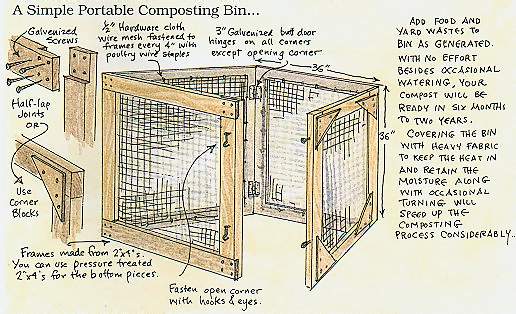 A Simple Portable Composting Bin...
Galvanized
Screws
½" Hardware cloth
wire mesh fastened to
frames every 4" with
poultry wire staples
3" Galvanized butt door
hinges on all corners
except opening corner
36"
36"
Half-lap
Joints
OR
Use
Corner
Blocks
Frames made from 2"x4"s.
You can use pressure treated
2"x4"s for the bottom pieces.
Fasten open corner
with hooks & eyes.
ADD FOOD AND
YARD WASTES TO
BIN AS GENERATED.
WITH NO EFFORT
BESIDES OCCASIONAL
WATERING, YOUR
COMPOST WILL BE
READY IN SIX MONTHS
TO TWO YEARS.
COVERING THE BIN
WITH HEAVY FABRIC
TO KEEP THE HEAT IN
AND RETAIN THE
MOISTURE ALONG
WITH OCCASIONAL
TURNING WILL
SPEED UP THE
COMPOSTING
PROCESS CONSIDERABLY..